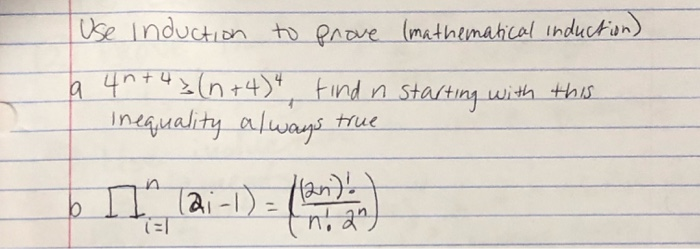 Use induction to prove (mathematical induction)
a 4^{n+4} ≥ (n+4)^4, find n starting with this
inequality always true
b ∏_{i=1}^{n} (2i-1) = ((2n)! / n! 2^n)